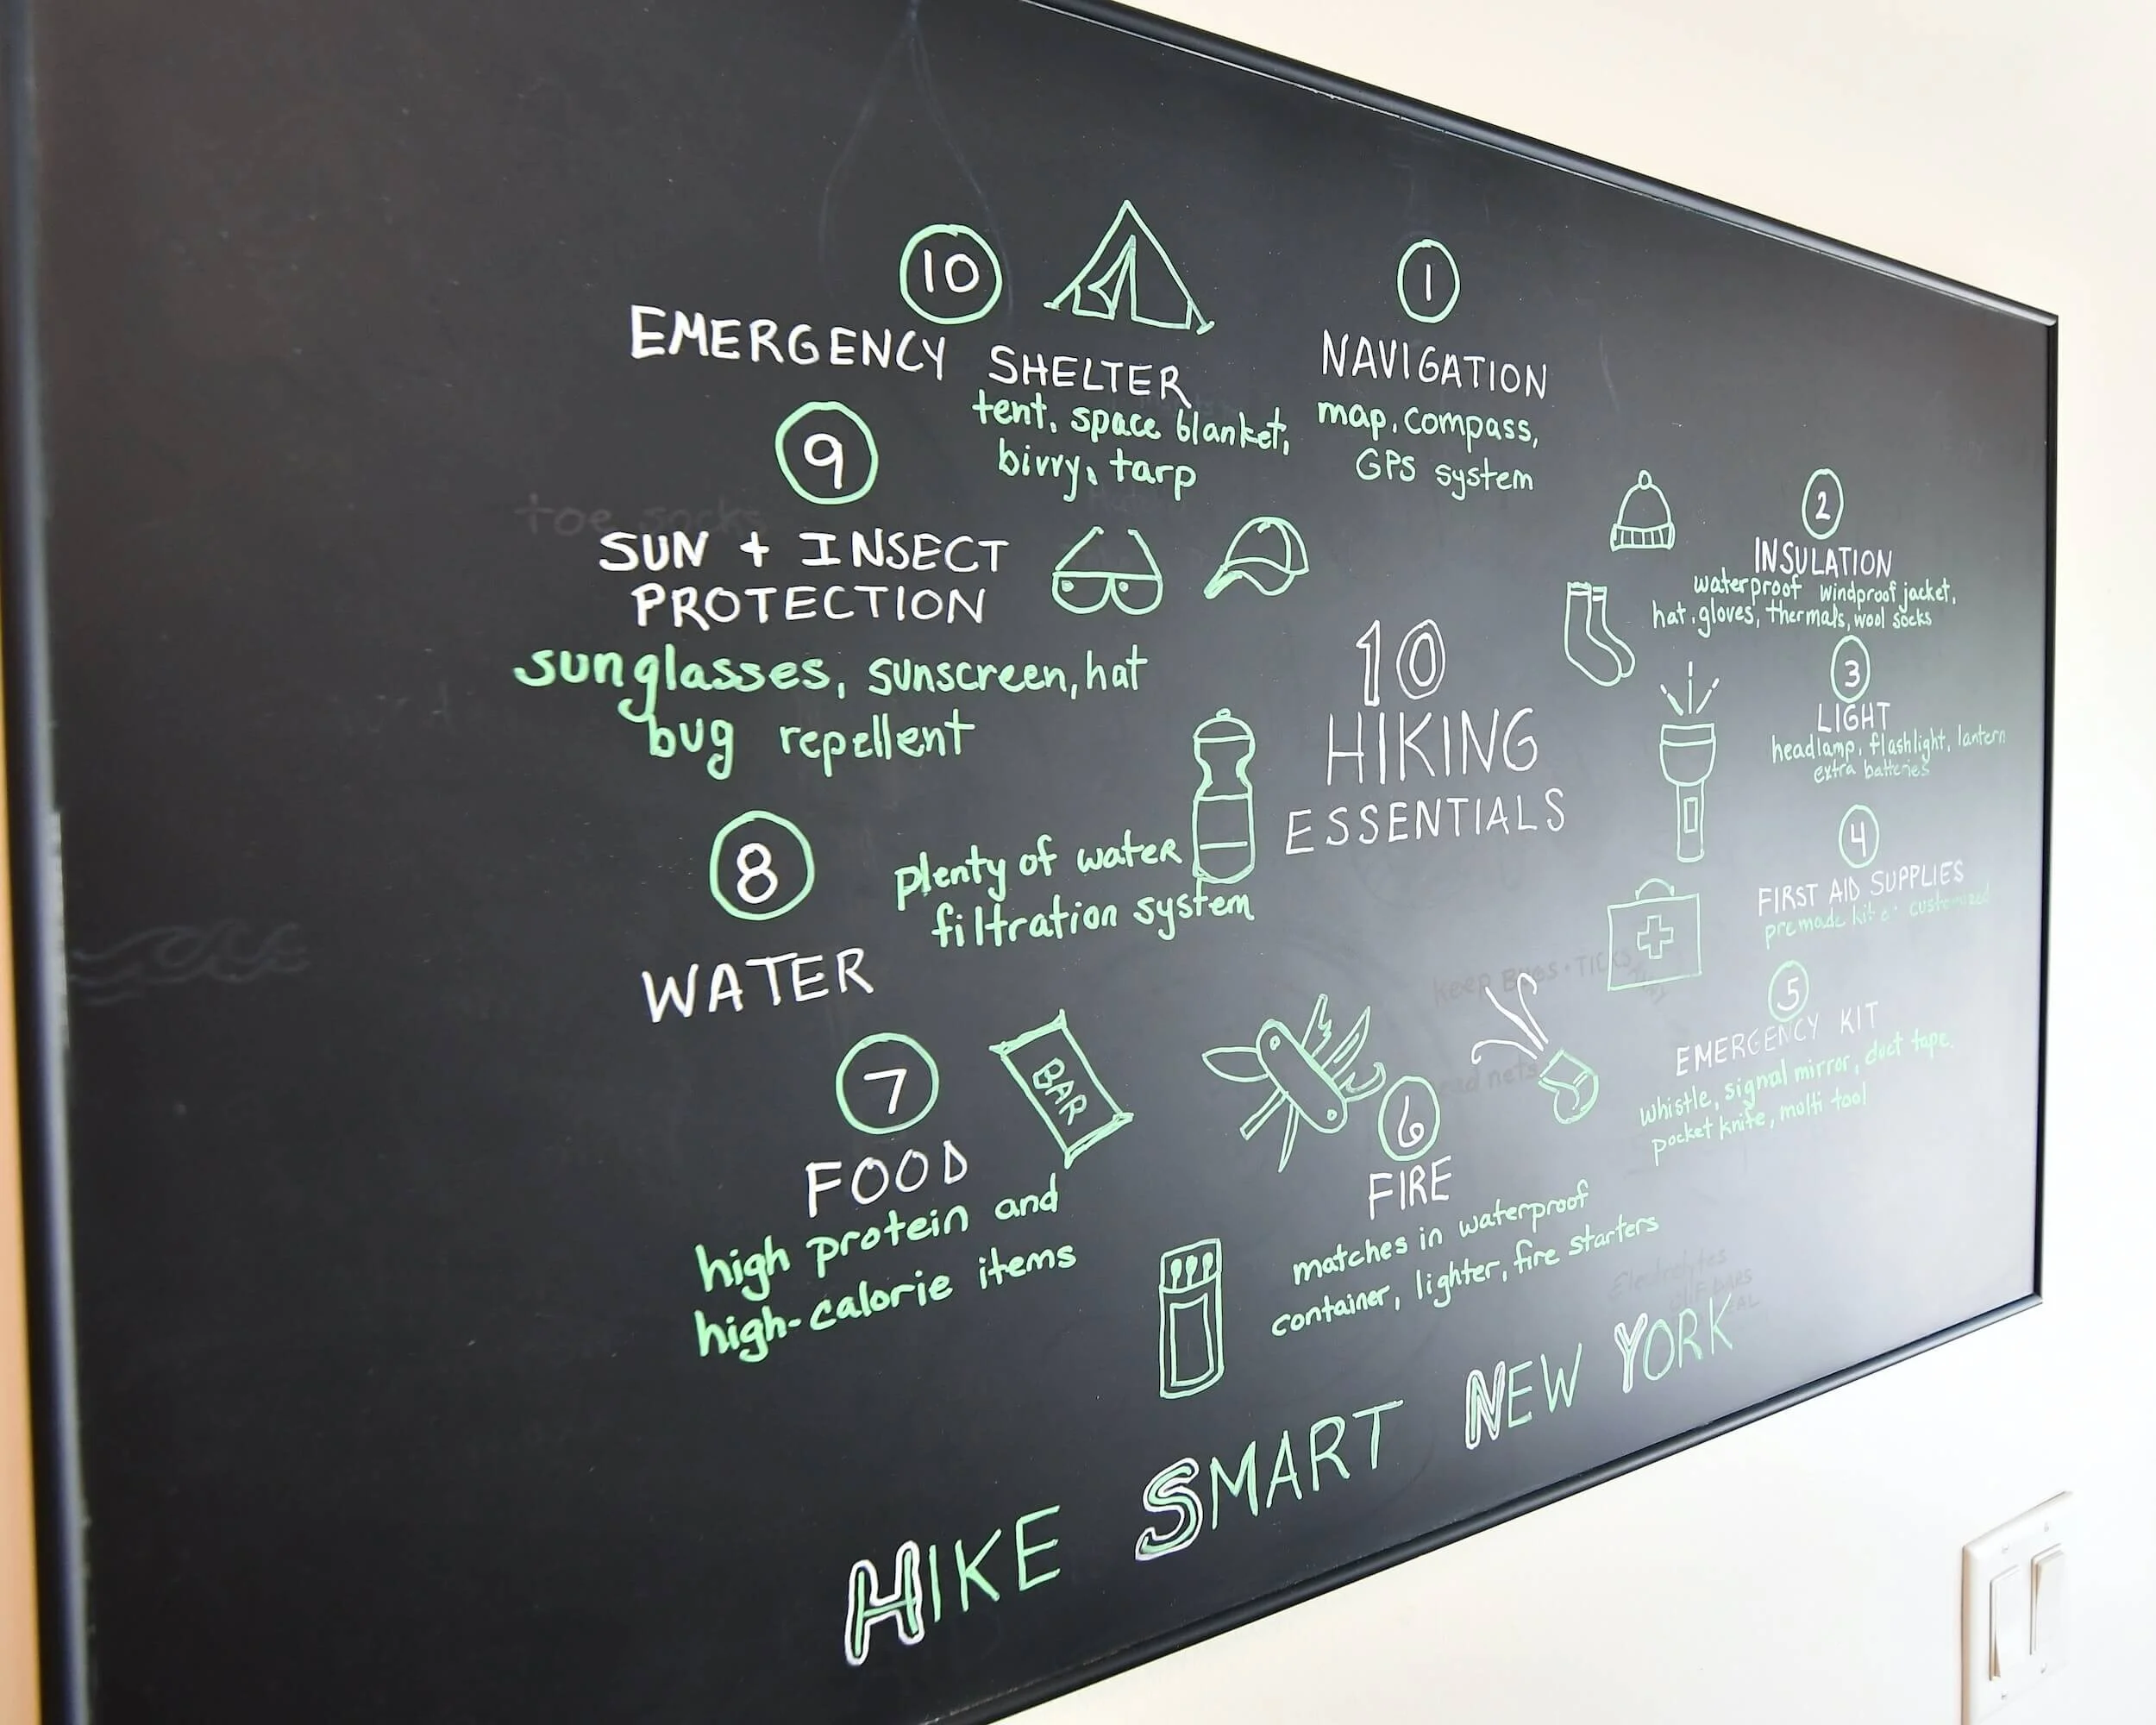 10
HIKING
ESSENTIALS
1
NAVIGATION
map, compass,
GPS system
2
INSULATION
waterproof windproof jacket,
hat, gloves, thermals, wool socks
3
LIGHT
headlamp, flashlight, lantern
extra batteries
4
FIRST AID SUPPLIES
premade kit customized
5
EMERGENCY KIT
whistle, signal mirror, duct tape,
pocket knife, molti tool
6
FIRE
matches in waterproof
container, lighter, fire starters
7
BAR
FOOD
high protein and
high-calorie items
8
plenty of water
filtration system
WATER
9
toe socks
SUN + INSECT
PROTECTION
sunglasses, sunscreen, hat
bug repellent
10
EMERGENCY SHELTER
tent, space blanket,
bivvy, tarp
keep BUGS + TICKS
nets
Electrolytes
HIKE SMART NEW YORK